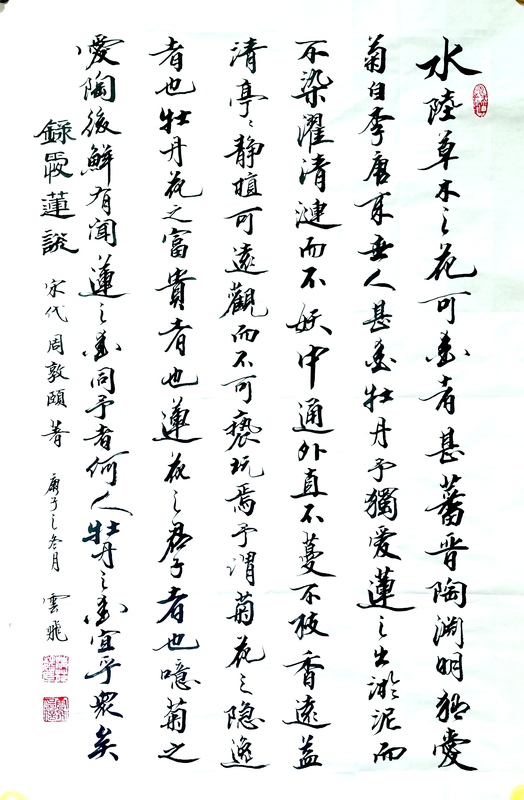 水陸草木之花可愛者甚蕃晋陶淵明獨愛
菊自李唐来世人甚愛牡丹予獨愛蓮之出淤泥而
不染濯清漣而不妖中通外直不蔓不枝香遠益
清亭〻静植可遠觀而不可褻玩焉予謂菊花之隐逸
者也牡丹花之富貴者也蓮花之君子者也噫菊之
愛陶後鮮有聞蓮之愛同予者何人牡丹之愛宜乎衆矣
錄愛蓮說 宋代周敦頤著 庚子之冬月 雲飛